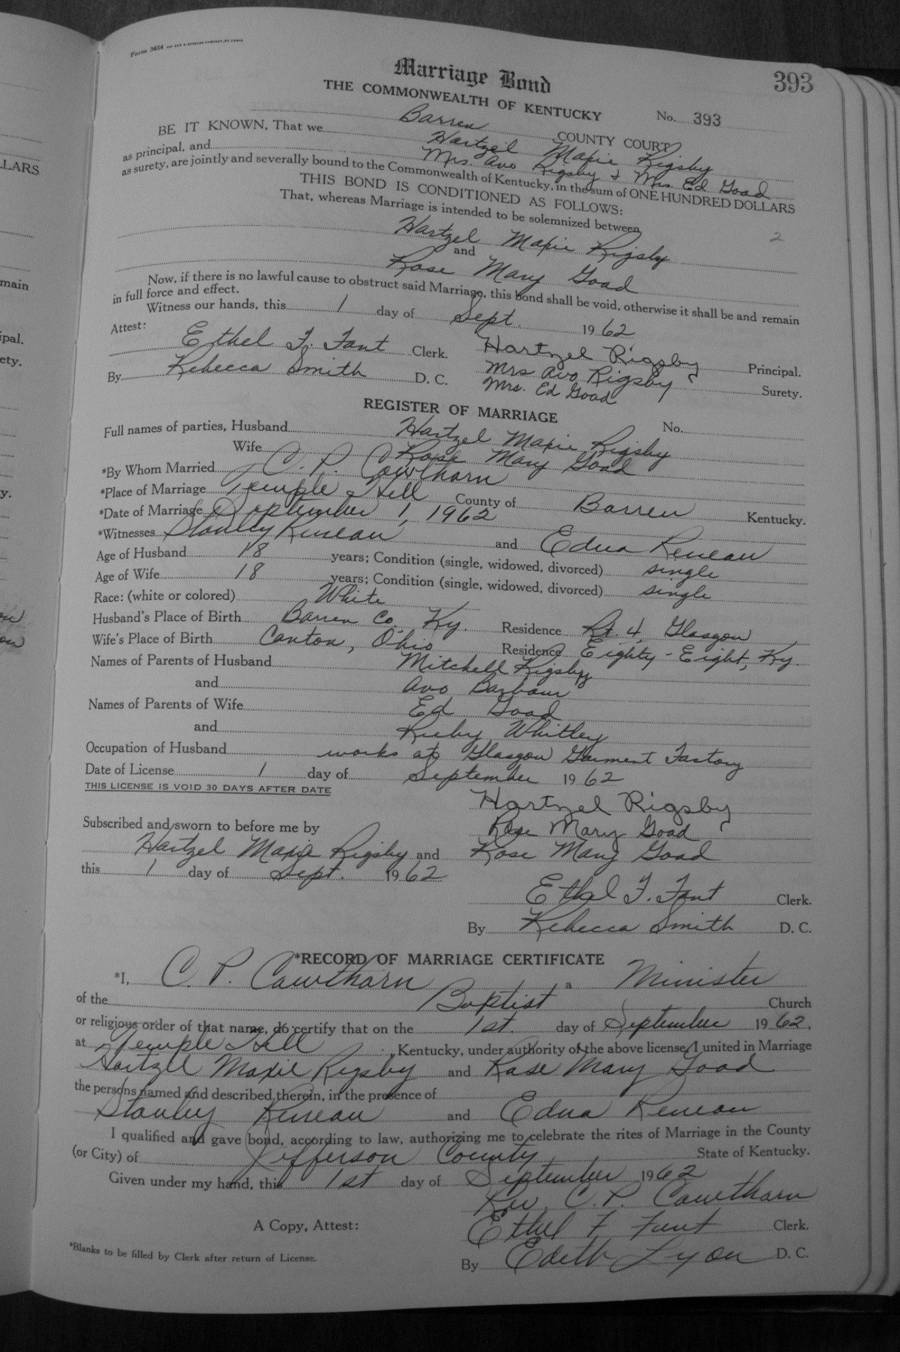 LLARS
main
ipal.
ety.
y.
Form 3654
393
Marriage Bond
THE COMMONWEALTH OF KENTUCKY No. 393
Barren COUNTY COURT
BE IT KNOWN, That we Hartzel Maxie Rigsby
as principal, and Mrs. Avo Rigsby & Mrs. Ed Goad
as surety, are jointly and severally bound to the Commonwealth of Kentucky, in the sum of ONE HUNDRED DOLLARS
THIS BOND IS CONDITIONED AS FOLLOWS:
That, whereas Marriage is intended to be solemnized between 2
Hartzel Maxie Rigsby
and
Rose Mary Goad
Now, if there is no lawful cause to obstruct said Marriage, this bond shall be void, otherwise it shall be and remain
in full force and effect.
Witness our hands, this 1 day of Sept. 1962
Attest:
Ethel F. Fant Clerk. Hartzel Rigsby Principal.
By Rebecca Smith D. C. Mrs Avo Rigsby Surety.
Mrs. Ed Goad
REGISTER OF MARRIAGE No.
Full names of parties, Husband Hartzel Maxie Rigsby
Wife Rose Mary Goad
*By Whom Married C. P. Cawthorn
*Place of Marriage Temple Hill County of Barren Kentucky.
*Date of Marriage September 1, 1962
*Witnesses Stanley Reneau and Edna Reneau
Age of Husband 18 years; Condition (single, widowed, divorced) single
Age of Wife 18 years; Condition (single, widowed, divorced) single
Race: (white or colored) White
Husband's Place of Birth Barren Co. Ky. Residence Rt. 4, Glasgow
Wife's Place of Birth Canton, Ohio Residence Eighty-Eight, Ky.
Names of Parents of Husband Mitchell Rigsby
and Avo Barbour
Names of Parents of Wife Ed Goad
and Ruby Whitley
Occupation of Husband works at Glasgow Garment Factory
Date of License 1 day of September 1962
THIS LICENSE IS VOID 30 DAYS AFTER DATE
Hartzel Rigsby
Subscribed and sworn to before me by Rose Mary Goad
Hartzel Maxie Rigsby and Rose Mary Goad
this 1 day of Sept. 1962
Ethel F. Fant Clerk.
By Rebecca Smith D. C.
*RECORD OF MARRIAGE CERTIFICATE
*I, C. P. Cawthorn a Minister
of the Baptist Church
or religious order of that name, do certify that on the 1st. day of September 1962,
at Temple Hill, Kentucky, under authority of the above license, I united in Marriage
Hartzell Maxie Rigsby and Rose Mary Goad
the persons named and described therein, in the presence of
Stanley Reneau and Edna Reneau
I qualified and gave bond, according to law, authorizing me to celebrate the rites of Marriage in the County
(or City) of Jefferson County State of Kentucky.
Given under my hand, this 1st day of September 1962
Rev. C. P. Cawthorn
A Copy, Attest: Ethel F. Fant Clerk.
*Blanks to be filled by Clerk after return of License. By Edith Lyon D. C.